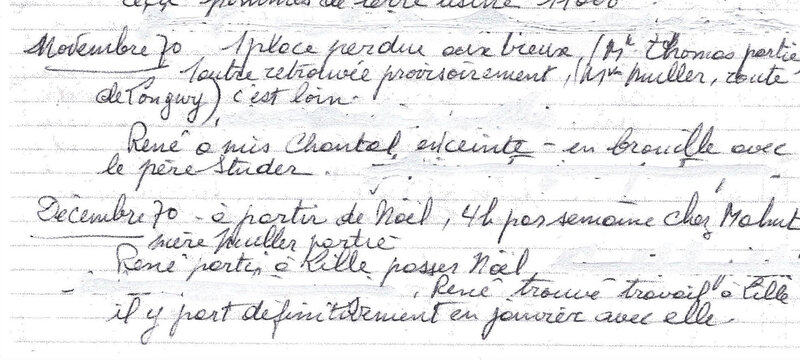 pommes de terre usine 11000
Novembre 70 1 place perdue aux Vieux (Mr Thomas partie
1 autre retrouvée provisoirement, (Mme Muller, route
de Longwy) c'est loin.
René a mis Chantal enceinte - en brouille avec
le père Studer.
Décembre 70 - à partir de Noël, 4h par semaine chez
mère Muller partie
René parti à Lille passer Noël
, René trouvé travail à Lille
il y part définitivement en janvier avec elle